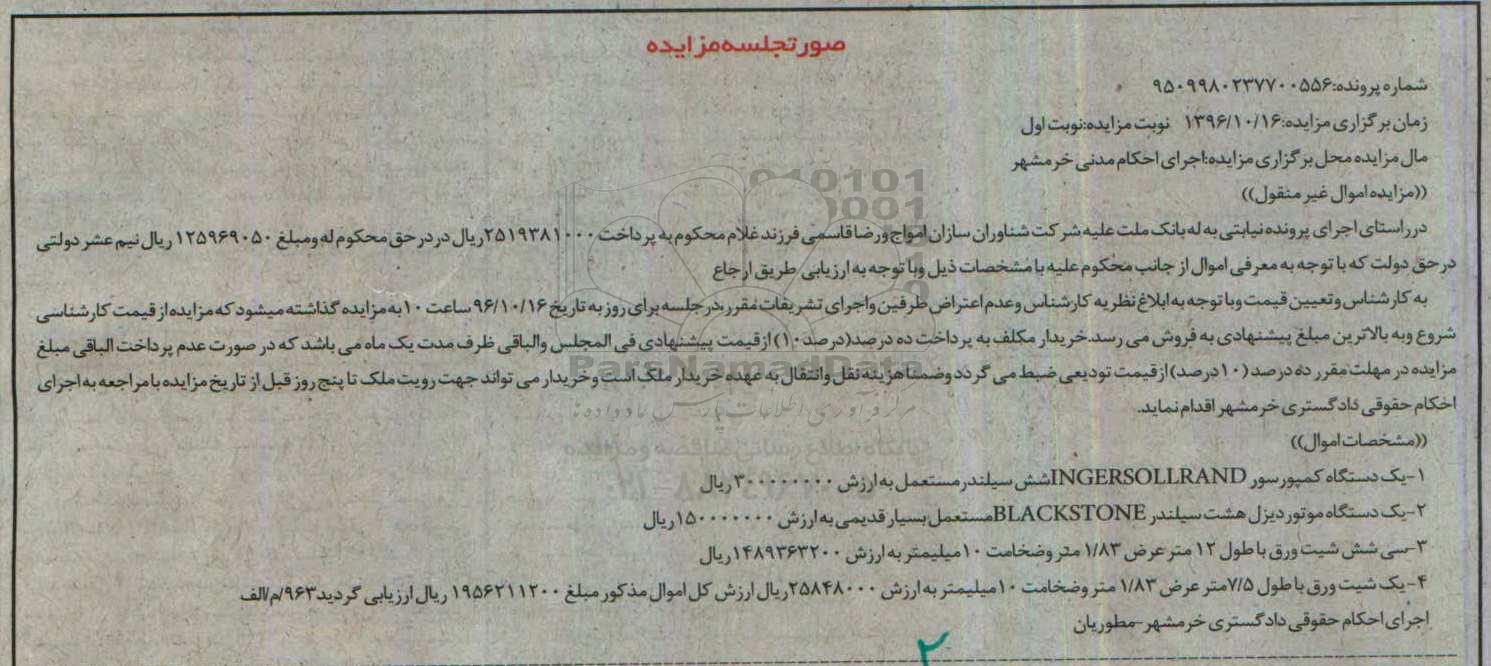 صورتجلسه مزایده
شماره پرونده:۹۵۰۹۹۸۰۲۳۷۷۰۰۵۵۶
زمان برگزاری مزایده:۱۳۹۶/۱۰/۱۶ نوبت مزایده:نوبت اول
مال مزایده محل برگزاری مزایده:اجرای احکام مدنی خرمشهر
((مزایده اموال غیر منقول))
درراستای اجرای پرونده نیابتی به له بانک ملت علیه شرکت شناوران سازان امواج ورضا قاسمی فرزند غلام محکوم به پرداخت ۲۵۱۹۳۸۱۰۰۰ ریال در در حق محکوم له ومبلغ ۱۲۵۹۶۹۰۵۰ ریال نیم عشر دولتی
درحق دولت که با توجه به معرفی اموال از جانب محکوم علیه با مشخصات ذیل وبا توجه به ارزیابی طریق ارجاع
به کارشناس وتعیین قیمت وبا توجه به ابلاغ نظریه کارشناس وعدم اعتراض طرفین واجرای تشریفات مقرر،درجلسه برای روز به تاریخ ۹۶/۱۰/۱۶ ساعت ۱۰ به مزایده گذاشته میشود که مزایده از قیمت کارشناسی
شروع وبه بالاترین مبلغ پیشنهادی به فروش می رسد.خریدار مکلف به پرداخت ده درصد(درصد۱۰) ازقیمت پیشنهادی فی المجلس والباقی ظرف مدت یک ماه می باشد که در صورت عدم پرداخت الباقی مبلغ
مزایده در مهلت مقرر ده درصد (۱۰درصد) ازقیمت تودیعی ضبط می گردد وضمنا هزینه نقل وانتقال به عهده خریدار ملک است وخریدار می تواند جهت رویت ملک تا پنج روز قبل از تاریخ مزایده با مراجعه به اجرای
احکام حقوقی دادگستری خرمشهر اقدام نماید.
((مشخصات اموال))
۱-یک دستگاه کمپورسور INGERSOLLRANDشش سیلندر مستعمل به ارزش ۳۰۰۰۰۰۰۰۰ ریال
۲-یک دستگاه موتور دیزل هشت سیلندر BLACKSTONEمستعمل بسیار قدیمی به ارزش ۱۵۰۰۰۰۰۰۰ ریال
۳-سی شش شیت ورق با طول ۱۲ متر عرض ۱/۸۳ متر وضخامت ۱۰ میلیمتر به ارزش ۱۴۸۹۳۶۳۲۰۰ ریال
۴-یک شیت ورق با طول ۷/۵متر عرض ۱/۸۳ متر وضخامت ۱۰ میلیمتر به ارزش ۲۵۸۴۸۰۰۰ریال ارزش کل اموال مذکور مبلغ ۱۹۵۶۲۱۱۲۰۰ ریال ارزیابی گردید۹۶۳/م/الف
اجرای احکام حقوقی دادگستری خرمشهر-مطوریان
۲
ParsNamadData
مرکز فرآوری اطلاعات پارس نماد داده ها